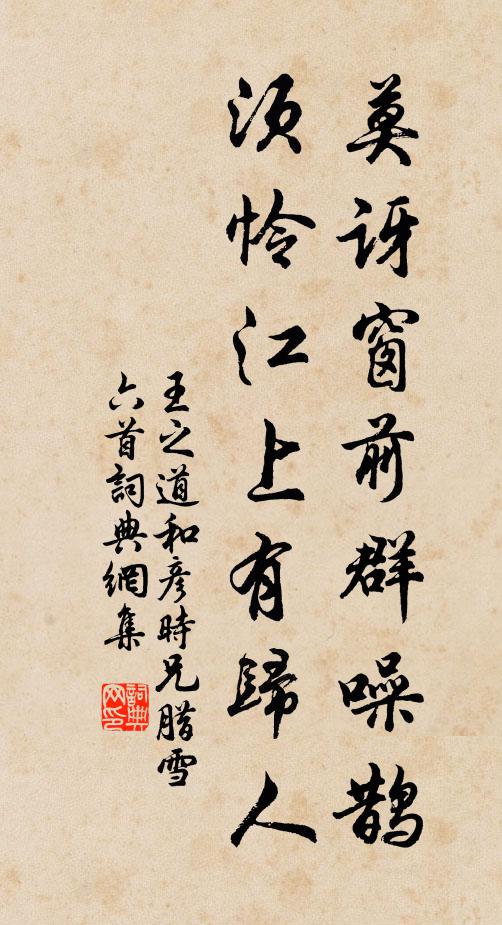 莫訝窗前群噪鵲
須怜江上有歸人
王之道和彦時兄腊雪
六首詞典網集
詞典
网印